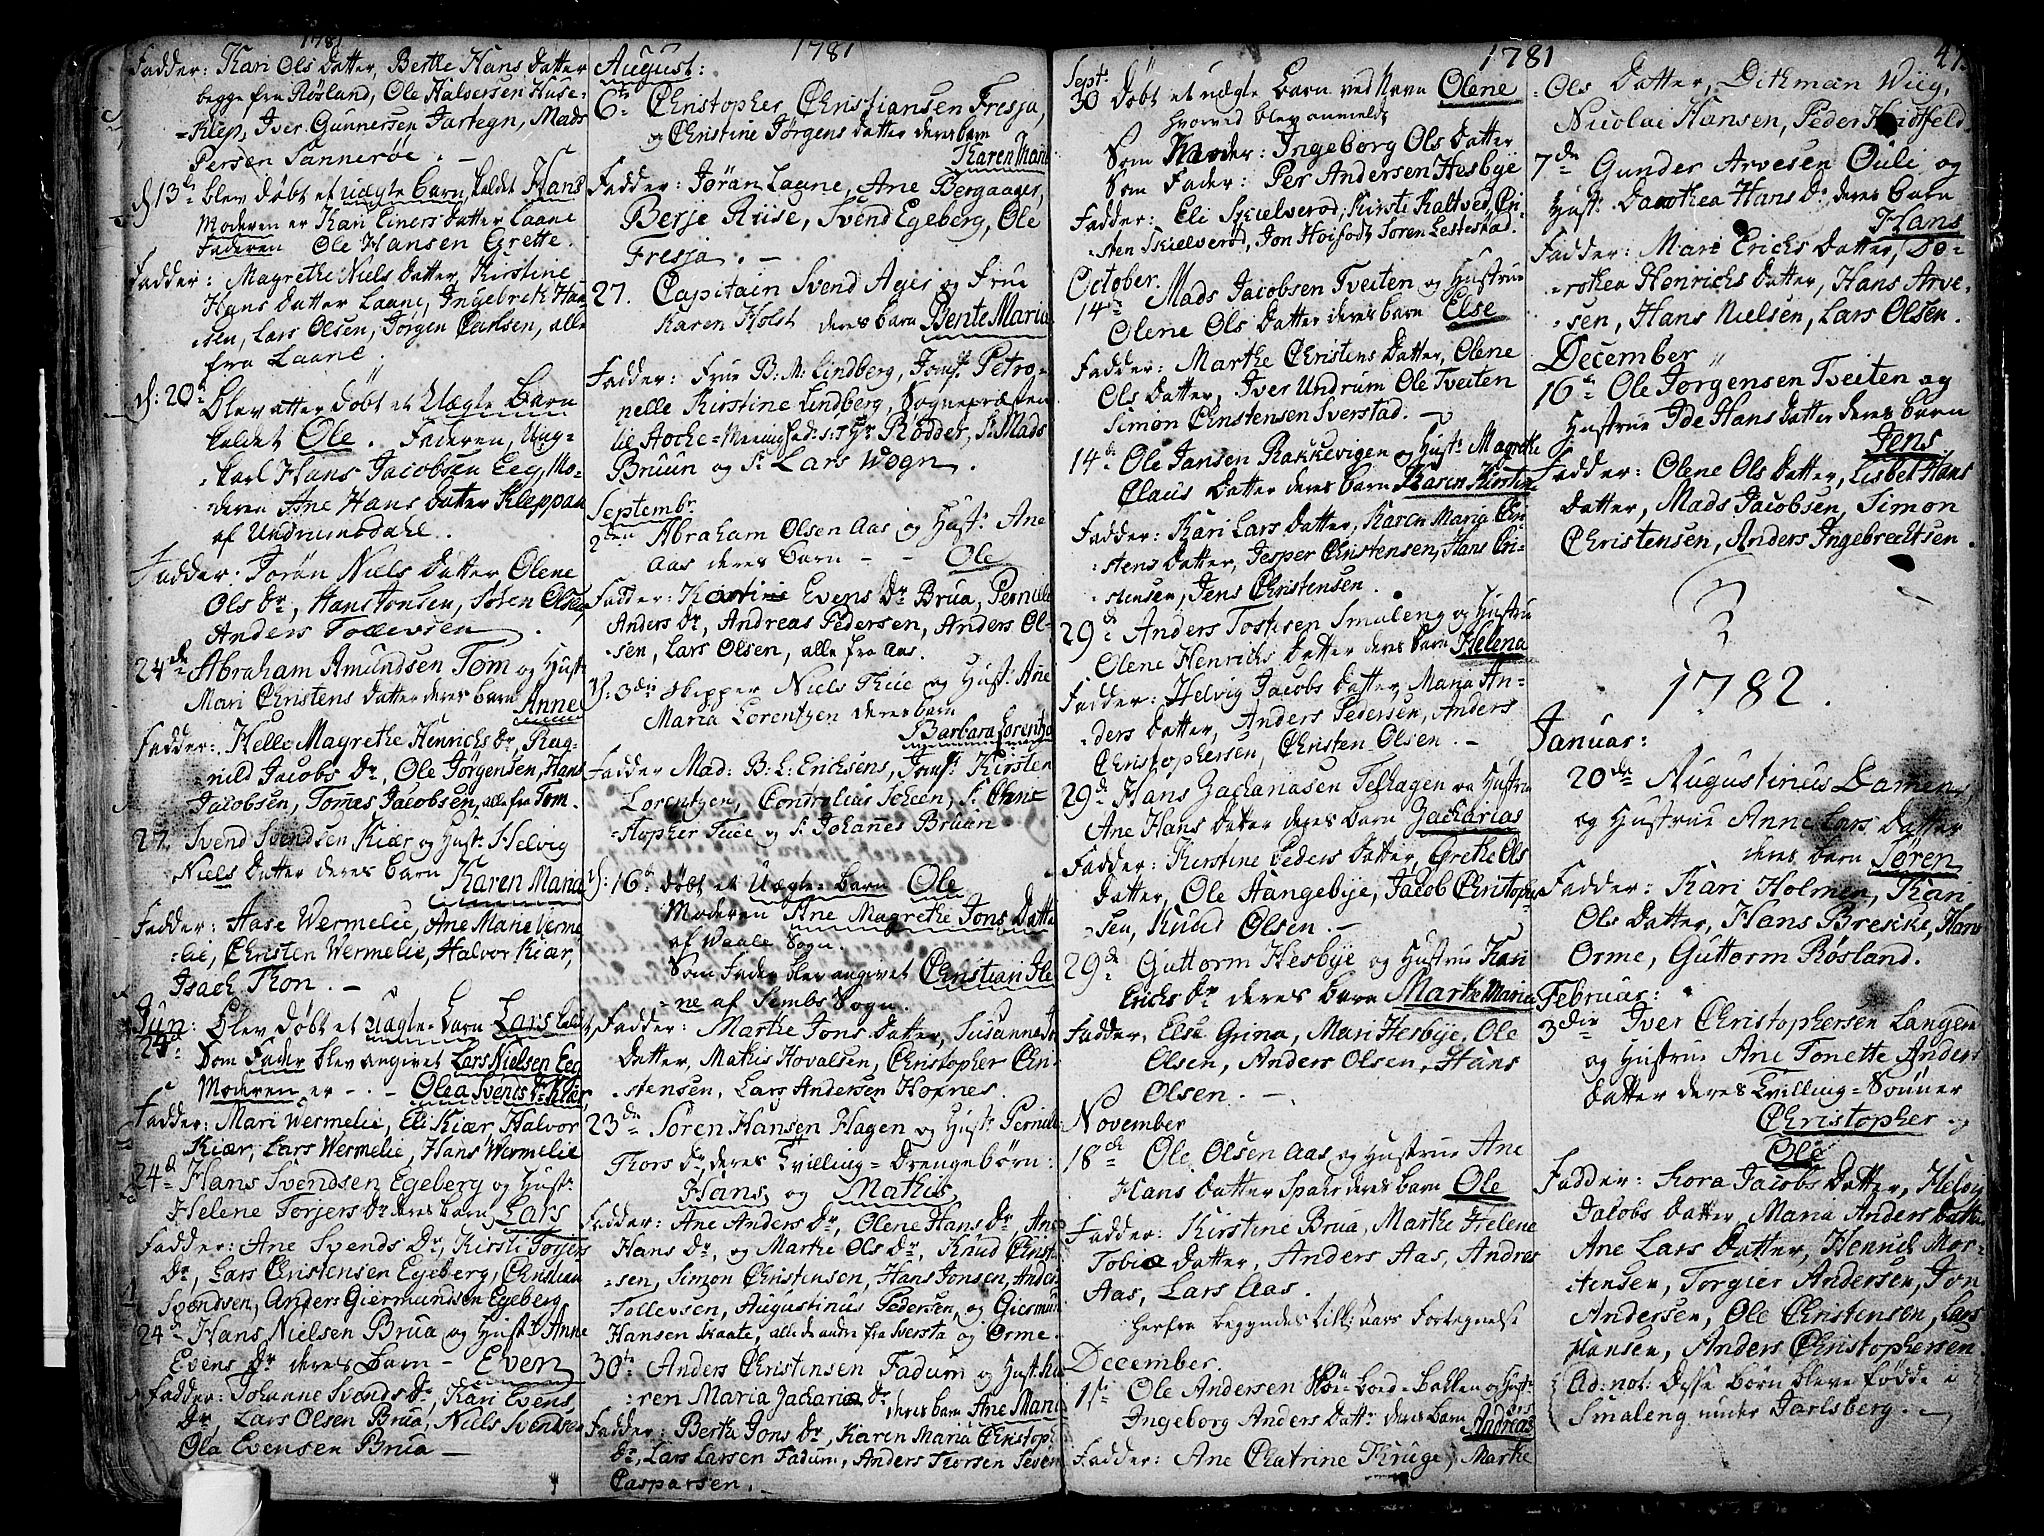 1781
Fadder: Kari Ols Datter, Berthe Hans Datter
begge fra Røsland, Ole Halversen Huse-
-Klep, Iver Gunnersen Jartegn, Mads
Persen Sannerøe. -
d 13de blev døbt et uægte barn, kaldet Hans
Moderen er Kari Einers Datter Laane
Faderen Ole Hansen Egrette.
Fadder: Magrethe Niels Datter, Kirstine
Hans Datter Laane, Ingebreth Han-
-sen, Lars Olsen, Jørgen Carlsen, alle
fra Laane.
d: 20de blev atter døbt et Uægte Barn
kaldet Ole. Faderen, Ung-
-karl Hans Jacobsen Eeg, Mo-
-deren Ane Hans Datter Kleppan
af Undrumsdahl.
Fadder: Jøran Niels Datter Olene
Ols Dr, Hans Jonsen, Søren Olsen
Anders Tollevsen.
24de Abraham Amundsen Tom og Hust:
Mari Christens Datter deres barn Anne
Fadder: Helle Magrethe Henrichs Dr, Rag-
-nild Jacobs Dr, Ole Jørgensen, Hans
Jacobsen, Tomas Jacobsen, alle fra Tom.
27. Svend Svendsen Kiær og Hust: Helvig
Niels Datter deres barn Karen Maria
Fadder: Aase Wermelie, Ane Marie Verme-
-lie, Christen Wermelie, Halvor Kiær,
Isach Thon. -
Jun: blev døbt et uægte-barn Lars kaldet,
24de Som Fader blev angivet Lars Nielsen Eeg
Moderen er - - Olea Svends Dr Kiær,
Fadder: Mari Wermelie, Eli Kiær, Halvor
Kiær, Lars Wermelie, Hans Wermelie
24d Hans Svendsen Egeberg og Hust:
Helene Torjers Dr deres barn, Lars
Fadder: Ane Svends Dr, Kirsti Torjers
Dr, Lars Christensen Egeberg, Christian
Svendsen, Anders Giermundsen Egeberg
24d Hans Nielsen Brua og Hustr Anne
Evens Dr deres Barn - Even
Fadder: Johanne Svends Dr, Kari Evens
Dr, Lars Olsen Brua, Niels Svendsen
Ola Evensen Brua -
1781
August:
6te Christopher Christiansen Fresja,
og Christine Jørgens Datter deres barn
Karen Maria
Fadder: Jøran Laane, Ane Bergaager,
Berje Riise, Svend Egeberg, Ole
Fresja. -
27. Capitain Svend Ager og Frue
Karen Holst deres barn Bente Maria
Fadder: Frue B: M: Lindberg, Jomf: Petro-
nelle Kirstine Lindberg, Sognepræsten
Hr Rødder, Sr Mads
Bruun og Sr Lars Wogn.
Septembr
2den Abraham Olsen Aas og Hust: Ane
Aas deres barn - - Ole
Fadder: Evens Dr Brua, Pernille
Anders Dr, Andreas Pedersen, Anders Ol-
-sen, Lars Olsen, alle fra Aas.
d: 3die skipper Niels Thue og Hust: Ane
Maria Lorentzen deres barn
Barbara Lorentze
Fadder Mad: B: L: Ericksens, Jomf: Kirsten
Lorentzen, Scheen, Sr Chri-
-stopher Tue og Sr Johannes Bruun
d: 16de døbt et Uægte-barn Ole
Moderen Ane Magrethe Jons Datter
af Waale Sogn.
Som Fader blev angivet Christian
af Sembs Sogn.
Fadder: Marthe Jons Datter, Susanna
Datter, Mathis Hovalsen, Christopher Chri-
-stensen, Lars Andersen Hopnes.
23de Søren Hansen Hagen og Hust: Pernille
Thors Dr, deres Tvilling=Drengebørn:
Hans, og Mathis
Fadder: Ane Anders Dr, Olene Hans Dr, Ane
Hans Dr, og Marthe Ols Dr, Knud Christ-
-sen, Simon Christensen, Hans Jonsen, Anders
Tollevsen, Augustinus Pedersen, og Giermun
Hansen Skaate, alle de andre fra Sversta og Orme.
30te Anders Christensen Fadum og Hust: Ka-
-ren Maria Zacharia Dr, deres barn Ane Maria
Fadder: Bertha Jons Dr, Karen Maria Christoph
Dr, Lars Larsen Fadum, Anders Thorsen
Caspersen. -
1781
Sept:
30 Døbt et uægte Barn ved Navn Olene
hvorved blev anmeldt
Som Moder: Ingeborg Ols Datter
Som Fader: Per Andersen Hesbye
Fadder: Eli Skielverød, Kirsti Kaltved, Cri-
-sten Skielverød, Jon Hoifodt Søren Lestestad.
October.
14de Mads Jacobsen Tveiten og Hustrue
Olene Ols Datter deres barn Else
Fadder: Marthe Christens Datter, Olene
Ols Datter, Iver Undrum Ole Tveiten
Simon Christensen Sverstad. -
14de Ole Jansen Rakkevigen og Hust: Magrethe
Claus Datter deres barn Karen Kirstine
Fadder: Kari Lars Datter, Karen Maria Cri-
-stens Datter, Jesper Christensen, Hans Cri-
-stensen, Jens Christensen.
29de Anders Smaleng og Hustru
Olene Henrichs Datter deres barn Helena
Fadder: Helvig Jacobs Datter, Maria An-
-ders Datter, Anders Pedersen, Anders
Christophersen, Christen Olsen. -
29de Hans Zachariasen Telhagen og Hustru
Ane Hans Datter deres barn Zacharias
Fadder: Kirstine Peders Datter, Grethe Ols
Datter, Ole Aangebye, Jacob Christopher-
-sen, Knud Olsen. -
29de Guttorm Hesbye og Hustrue Kari
Erichs Dr deres barn Marthe Maria
Fadder, Else Grina, Mari Hesbye, Ole
Olsen, Anders Olsen, Hans
Olsen. -
November
18de Ole Olsen Aas og Hustrue Ane
Hans Datter deres barn Ole
Fadder: Kirstine Brua, Marthe Helene
Tobias Datter, Anders Aas, Andres
Aas, Lars Aas.
herfra begyndes Aars Fortegnelse
December.
1ste Ole Andersen Bakken og Hust:
Ingeborg Anders Datr deres barn Andreas
Fadder: Ane Chatrine Kruge, Marthe
1781
47.
Ols Datter, Dithman Wiig,
Nicolai Hansen, Peder Hadfeld.
7de Gunder Arvesen Ouli og
Hust: Dorothea Hans Dr deres barn
Hans
Fadder: Mari Erichs Datter, Do-
-rothea Henrichs Datter, Hans Arve-
-sen, Hans Nielsen, Lars Olsen.
December
16de Ole Jørgensen Tveiten og
Hustrue Ide Hans Datter deres barn
Jens
Fadder: Olene Ols Datter, Lisbet Hans
Datter, Mads Jacobsen, Simon
Christensen, Anders Ingebrechtsen.
1782.
Januar:
20de Augustinus Damen,
og Hustrue Anne Lars Datter
deres barn Søren
Fadder: Kari Holmen, Kari
Ols Datter, Hans Brekke, Hans
Orme, Guttorm Røsland.
Februar:
3die Iver Christophersen Langend
og Hustrue Ane Tonette Anders
Datter deres Tvilling=Sønner
Christopher og
Ole
Fadder: Kora Jacobs Datter, Helvig
Jacobs Datter, Maria Anders Datter
Ane Lars Datter, Henrich Mor-
-tensen, Torgier Andersen, Jon
Andersen, Ole Christensen, Lars
Hansen, Anders Christophersen
Ad: not: Disse børn bleve fødde i
Smaleng under Jarlsberg. -